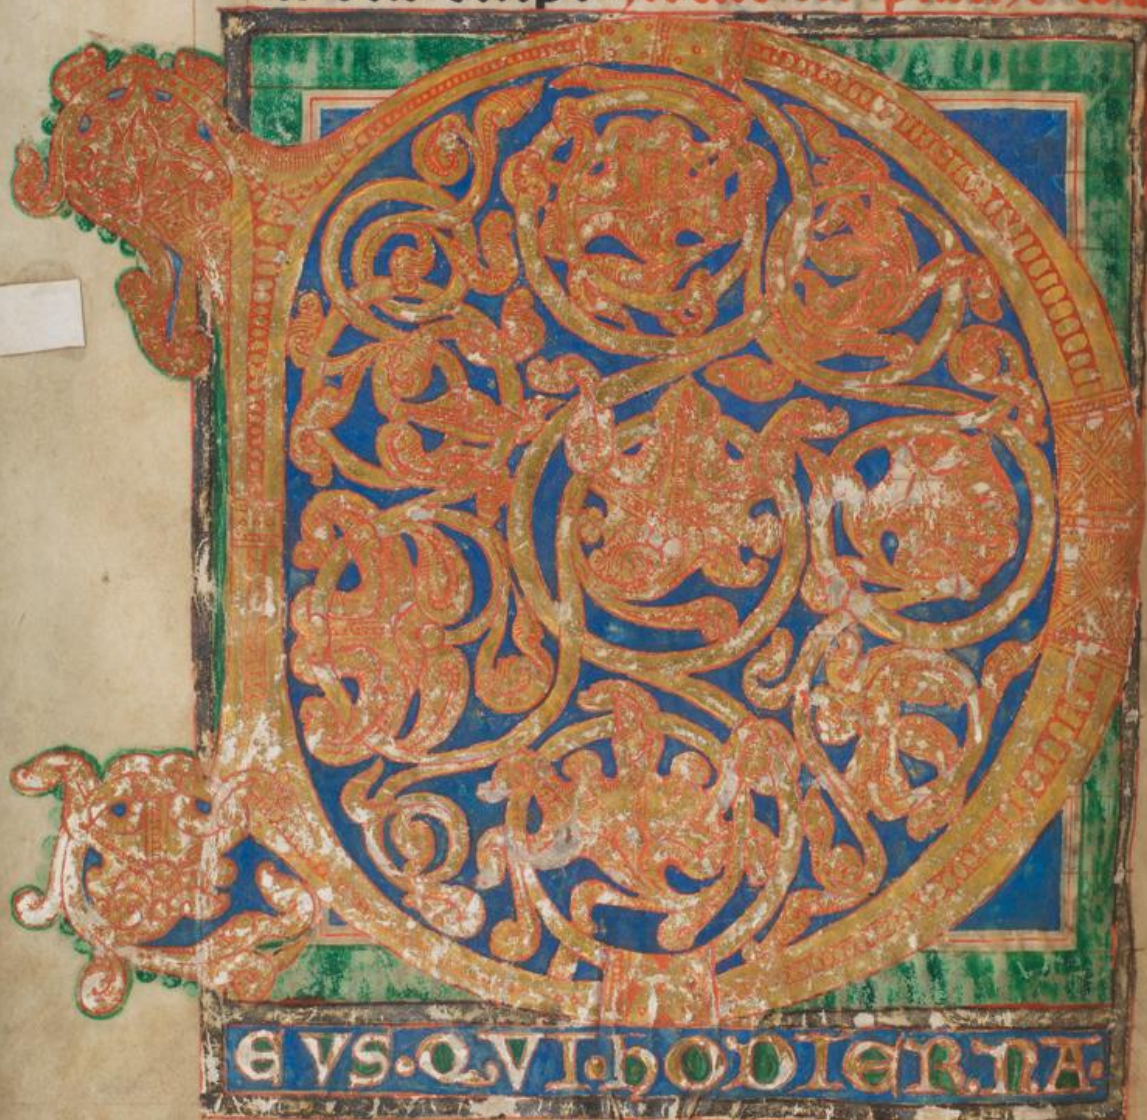 D
EVS·QVI·hODIERNA·